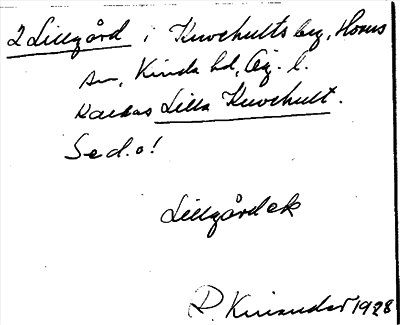 2 Lillgård i Knvchults by, Horns
sn, Kinda hd, Ög. l.
kallas Lilla Knvchult.
Se d.o!
Lillgård ek
R. Kinander 1928